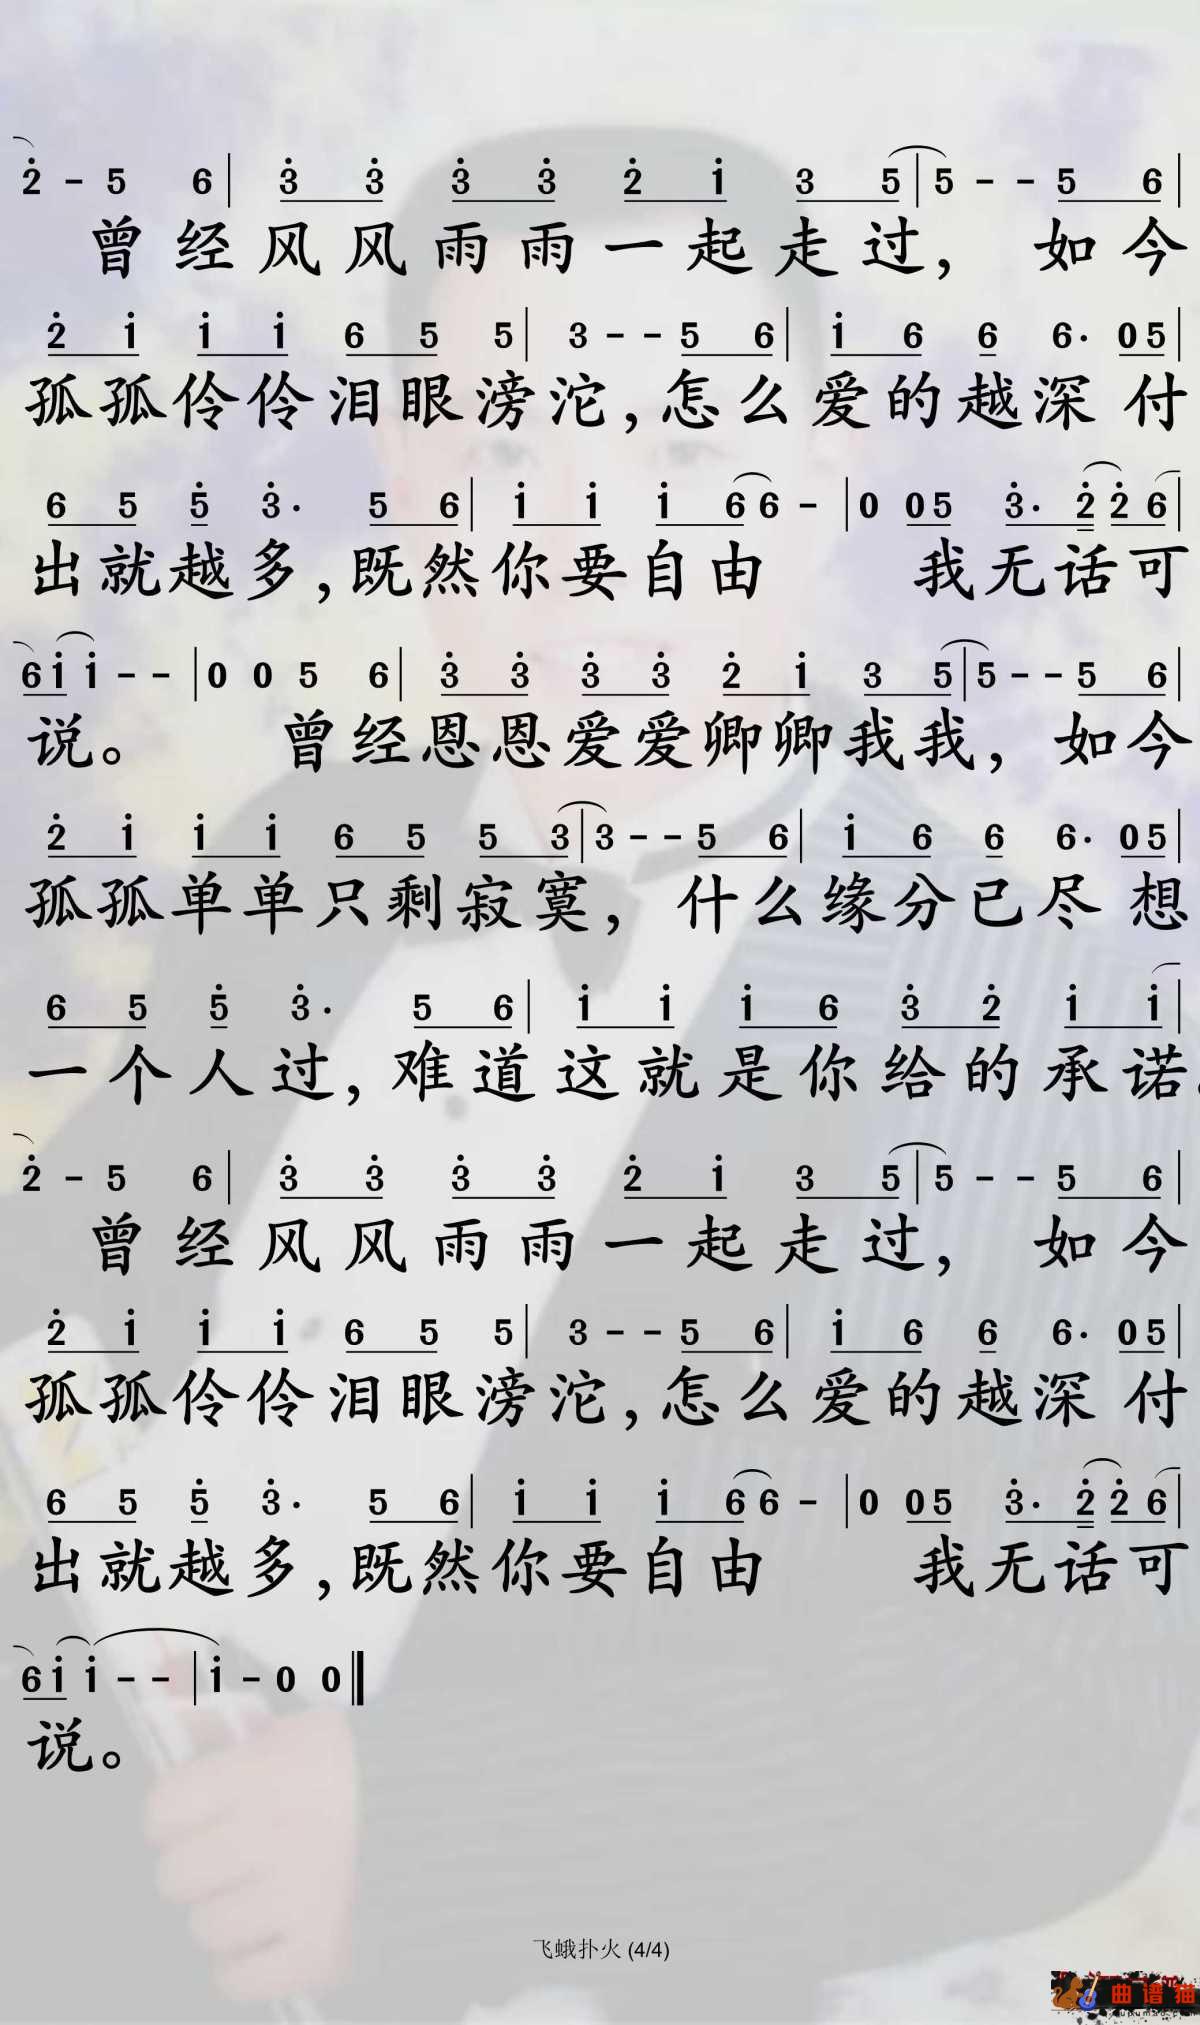 2 - 5 6 | 3 3 3 3 2 1 3 5 | 5 - - 5 6 |
曾经风风雨雨一起走过, 如今
2 1 1 1 6 5 5 | 3 - - 5 6 | 1 6 6 6· 05 |
孤孤伶伶泪眼滂沱,怎么爱的越深 付
6 5 5 3· 5 6 | 1 1 1 66 - | 0 05 3· 22 6 |
出就越多,既然你要自由 我无话可
61 1 - - | 0 0 5 6 | 3 3 3 3 2 1 3 5 | 5 - - 5 6 |
说。 曾经恩恩爱爱卿卿我我, 如今
2 1 1 1 6 5 5 3 | 3 - - 5 6 | 1 6 6 6· 05 |
孤孤单单只剩寂寞, 什么缘分已尽 想
6 5 5 3· 5 6 | 1 1 1 6 3 2 1 1 |
一个人过,难道这就是你给的承诺
2 - 5 6 | 3 3 3 3 2 1 3 5 | 5 - - 5 6 |
曾经风风雨雨一起走过, 如今
2 1 1 1 6 5 5 | 3 - - 5 6 | 1 6 6 6· 05 |
孤孤伶伶泪眼滂沱,怎么爱的越深 付
6 5 5 3· 5 6 | 1 1 1 66 - | 0 05 3· 22 6 |
出就越多,既然你要自由 我无话可
61 1 - - | 1 - 0 0 ‖
说。
飞蛾扑火 (4/4)
曲谱猫